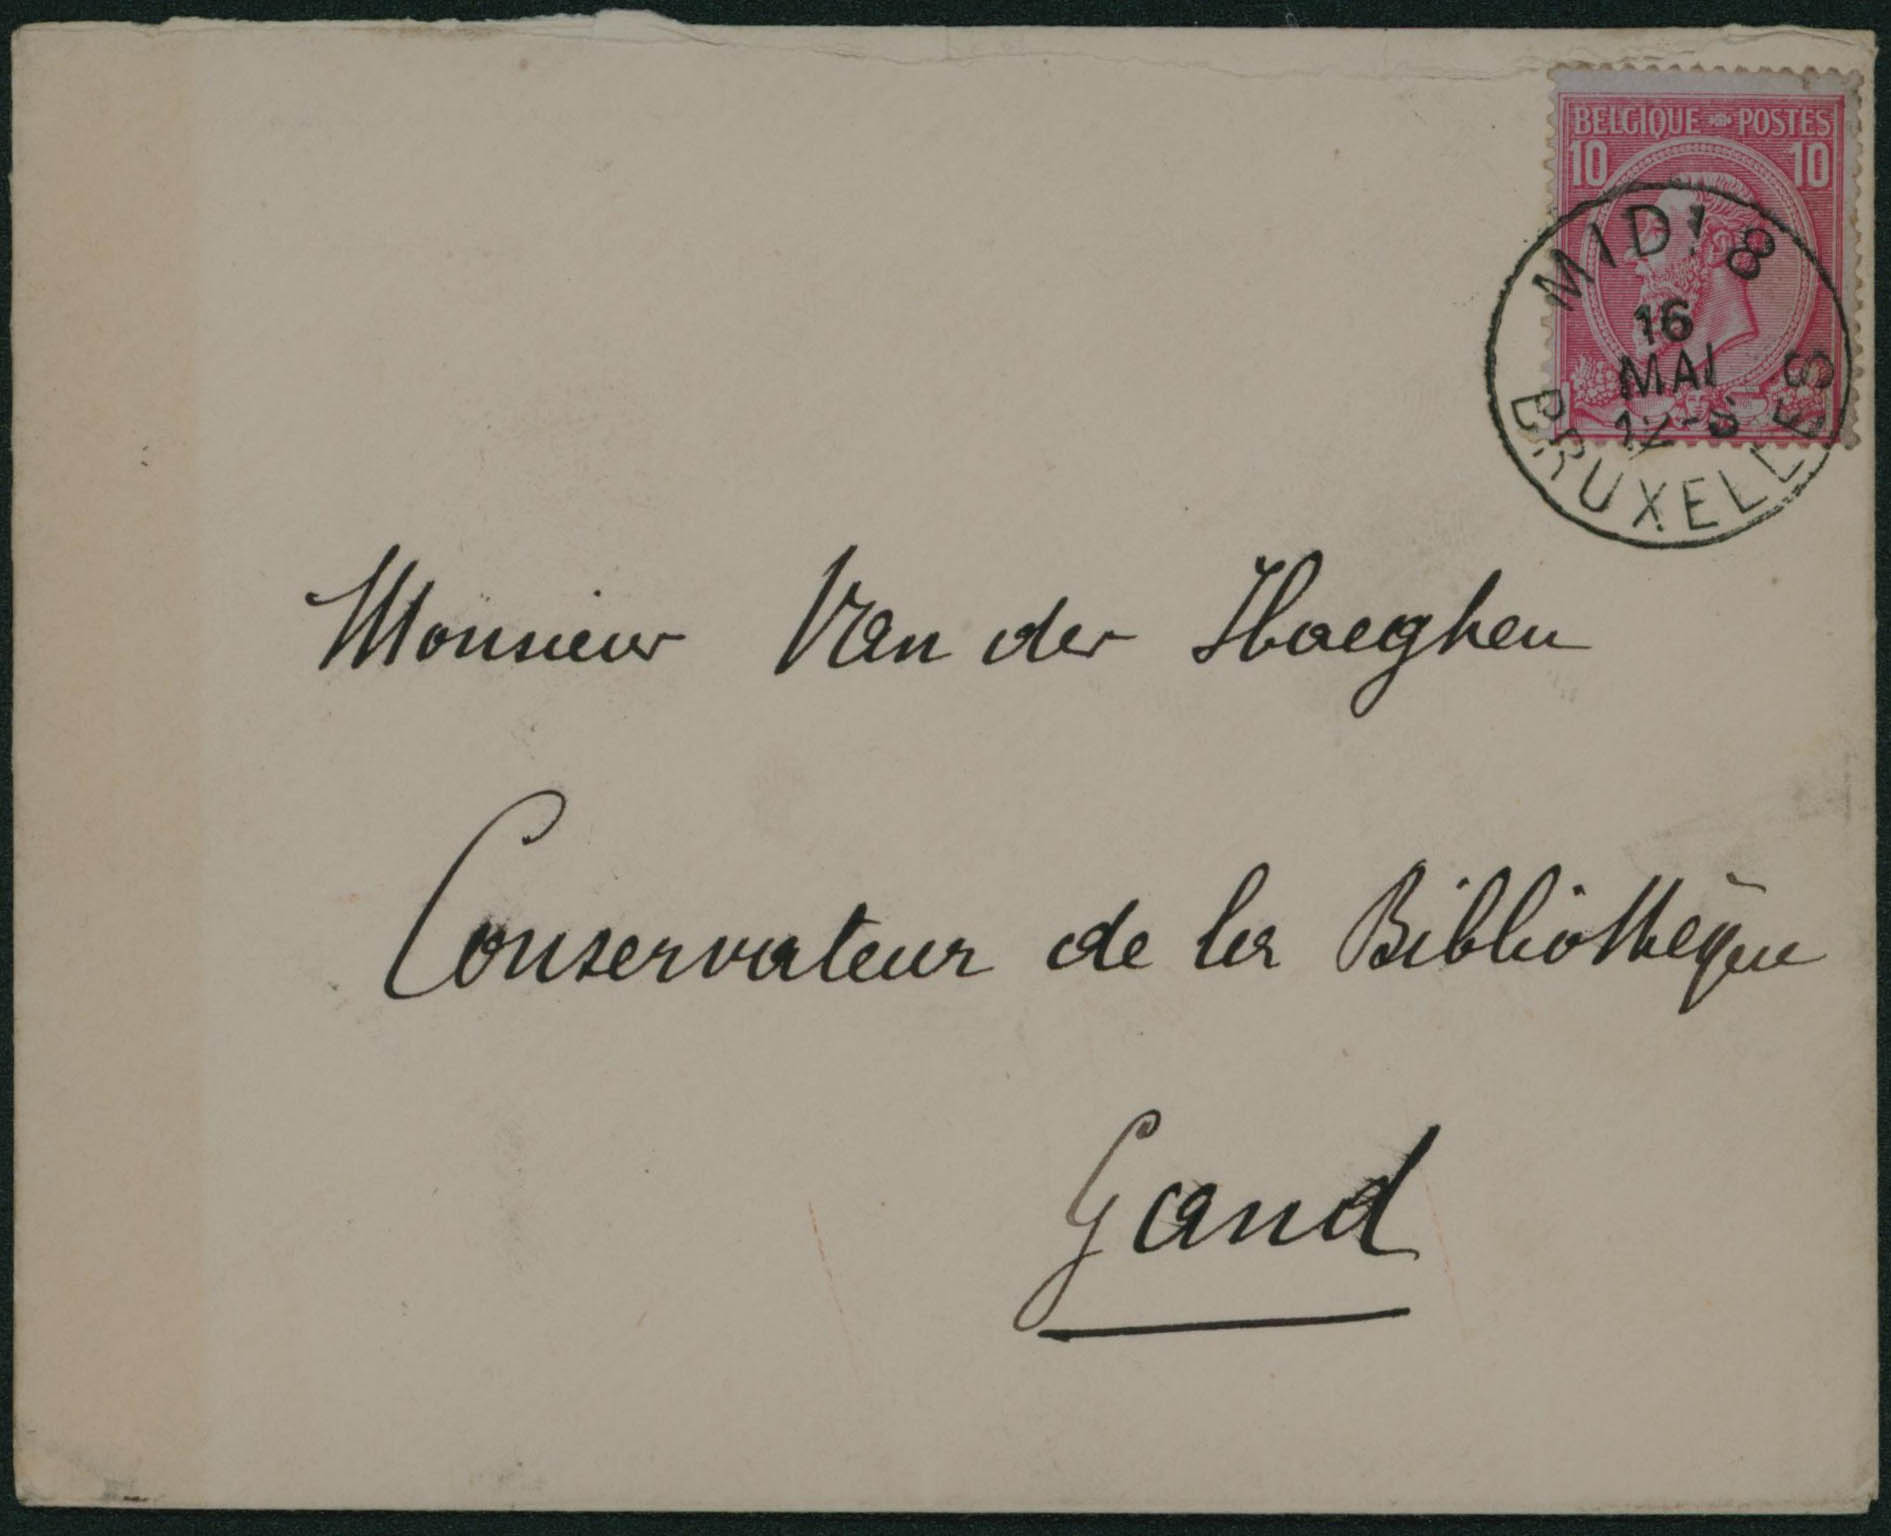 BELGIQUE POSTES
10 10
MIDI 8
16
MAI
12-S
BRUXELLES
Monsieur Van der Haeghen
Conservateur de la Bibliothèque
Gand